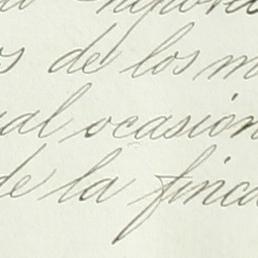 s de los m
ual ocasión
de la finca